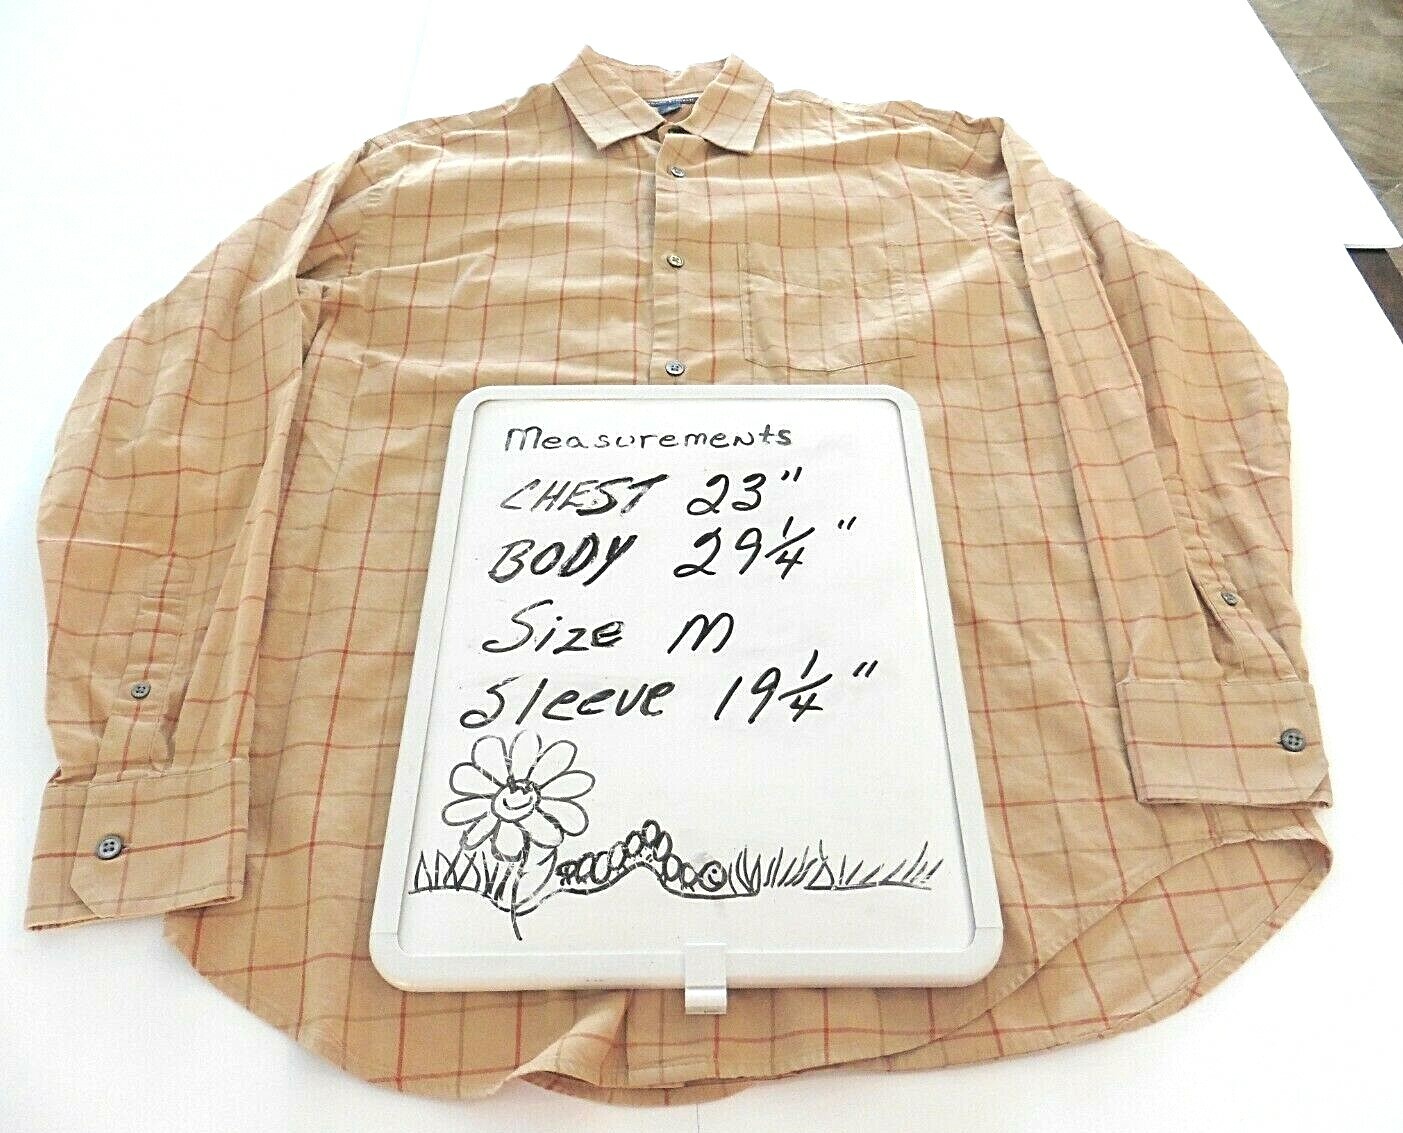 Measurements
CHEST 23"
BODY 29 1/4"
Size M
Sleeve 19 1/4"